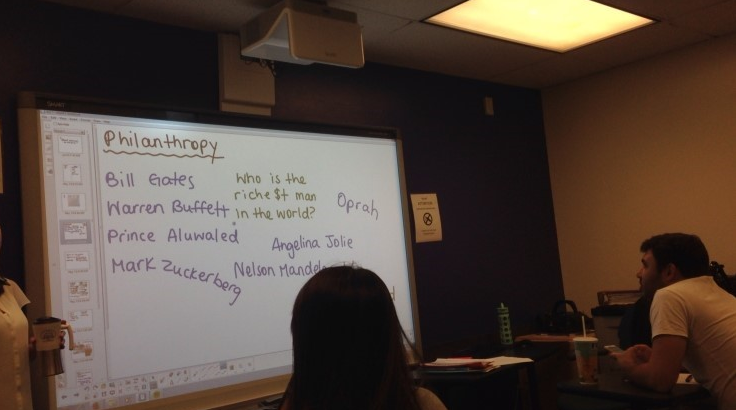 Philanthropy
Bill Gates
Warren Buffett
Prince Aluwaled
Mark Zuckerberg
Who is the
riche$t man
in the world?
Oprah
Angelina Jolie
Nelson Mandela